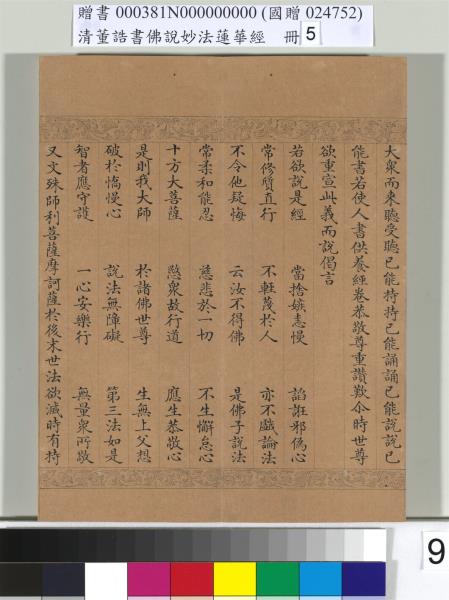 贈書 000381N000000000 (國贈 024752)
清董誥書佛說妙法蓮華經 冊 5
大眾而來聽受聽已能持持已能誦誦已能說說已
能書若使人書供養經卷恭敬尊重讚歎尒時世尊
欲重宣此義而說偈言
若欲說是經 當捨嫉恚慢 諂誑邪偽心
常修質直行 不輕蔑於人 亦不戲論法
不令他疑悔 云汝不得佛 是佛子說法
常柔和能忍 慈悲於一切 不生懈怠心
十方大菩薩 愍眾故行道 應生恭敬心
是則我大師 於諸佛世尊 生無上父想
破於憍慢心 說法無障礙 第三法如是
智者應守護 一心安樂行 無量眾所敬
又文殊師利菩薩摩訶薩於後末世法欲滅時有持
9